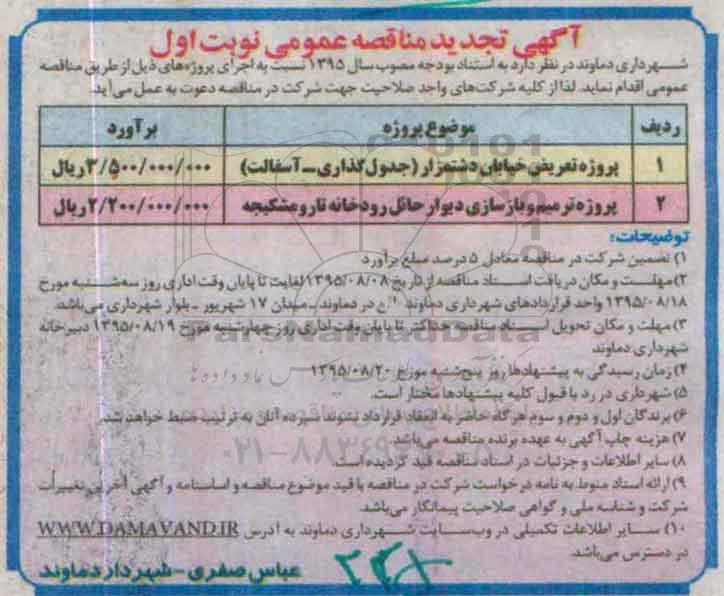 آگهی تجدید مناقصه عمومی نوبت اول
شهرداری دماوند در نظر دارد به استناد بودجه مصوب سال ۱۳۹۵ نسبت به اجرای پروژه‌های ذیل از طریق مناقصه
عمومی اقدام نماید. لذا از کلیه شرکت‌های واجد صلاحیت جهت شرکت در مناقصه دعوت به عمل می‌آید.
ردیف موضوع پروژه برآورد
۱ پروژه تعریض خیابان دشتمزار (جدول گذاری - آسفالت) ۳/۵۰۰/۰۰۰/۰۰۰ ریال
۲ پروژه ترمیم و بازسازی دیوار حائل رودخانه تار و مشکیجه ۲/۲۰۰/۰۰۰/۰۰۰ ریال
توضیحات:
۱) تضمین شرکت در مناقصه معادل ۵ درصد مبلغ برآورد
۲) مهلت و مکان دریافت اسناد مناقصه از تاریخ ۱۳۹۵/۰۸/۰۸ لغایت تا پایان وقت اداری روز سه‌شنبه مورخ
۱۳۹۵/۰۸/۱۸ واحد قراردادهای شهرداری دماوند در دماوند - میدان ۱۷ شهریور - بلوار شهرداری می‌باشد.
۳) مهلت و مکان تحویل اسناد مناقصه حداکثر تا پایان وقت اداری روز چهارشنبه مورخ ۱۳۹۵/۰۸/۱۹ دبیرخانه
شهرداری دماوند
۴) زمان رسیدگی به پیشنهادها روز پنج‌شنبه مورخ ۱۳۹۵/۰۸/۲۰
۵) شهرداری در رد یا قبول کلیه پیشنهادها مختار است.
۶) برندگان اول و دوم و سوم هرگاه حاضر به انعقاد قرارداد نشوند سپرده آنان به ترتیب ضبط خواهد شد.
۷) هزینه چاپ آگهی به عهده برنده مناقصه می‌باشد.
۸) سایر اطلاعات و جزئیات در اسناد مناقصه قید گردیده است.
۹) ارائه اسناد منوط به نامه درخواست شرکت در مناقصه با قید موضوع مناقصه و اساسنامه و آگهی آخرین تغییرات
شرکت و شناسه ملی و گواهی صلاحیت پیمانکار می‌باشد.
۱۰) سایر اطلاعات تکمیلی در وب‌سایت شهرداری دماوند به آدرس WWW.DAMAVAND.IR
در دسترس می‌باشد.
عباس صفری - شهردار دماوند
ParsNamadData